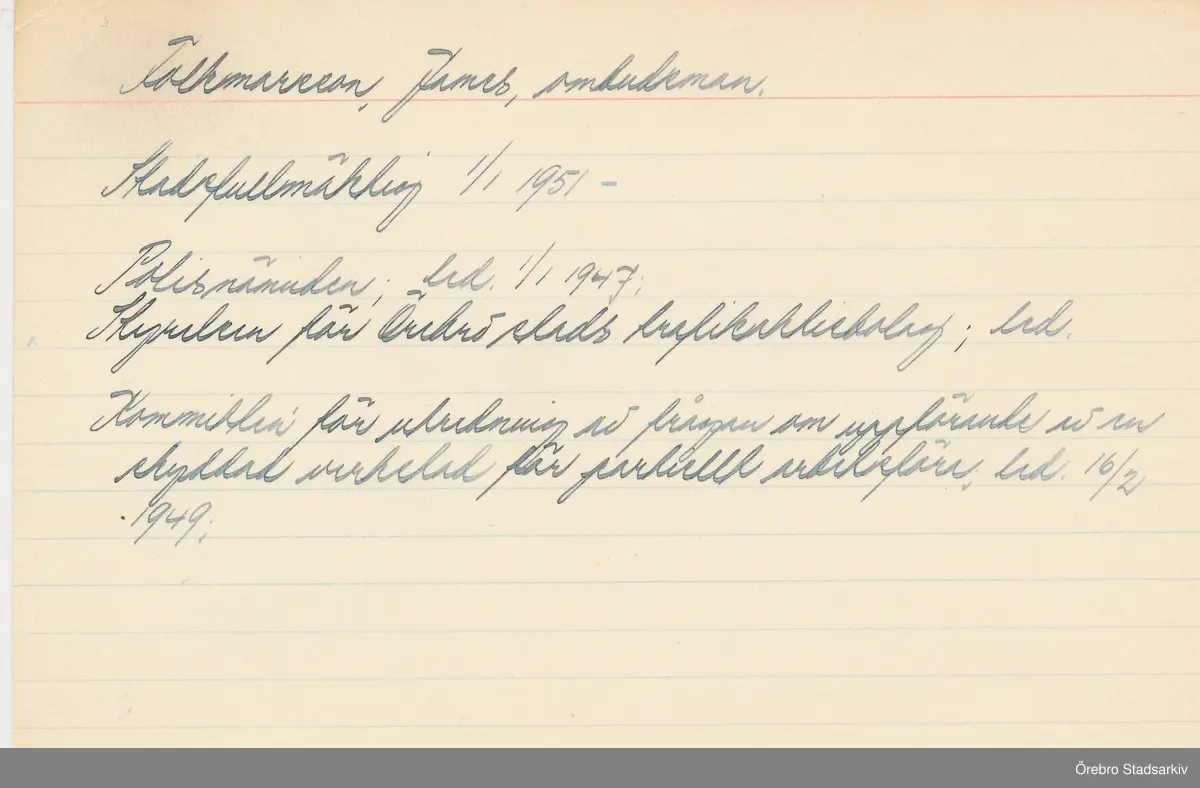 Folkmarsson, James, ombudsman.
Stadsfullmäktig 1/1 1951 -
Polisnämnden; led. 1/1 1947;
Styrelsen för Örebro stads trafikaktiebolag; led.
Kommittén för utredning av frågan om uppförande av en
skyddad verkstad för partiellt arbetsföra; led. 16/2
1949;
Örebro Stadsarkiv